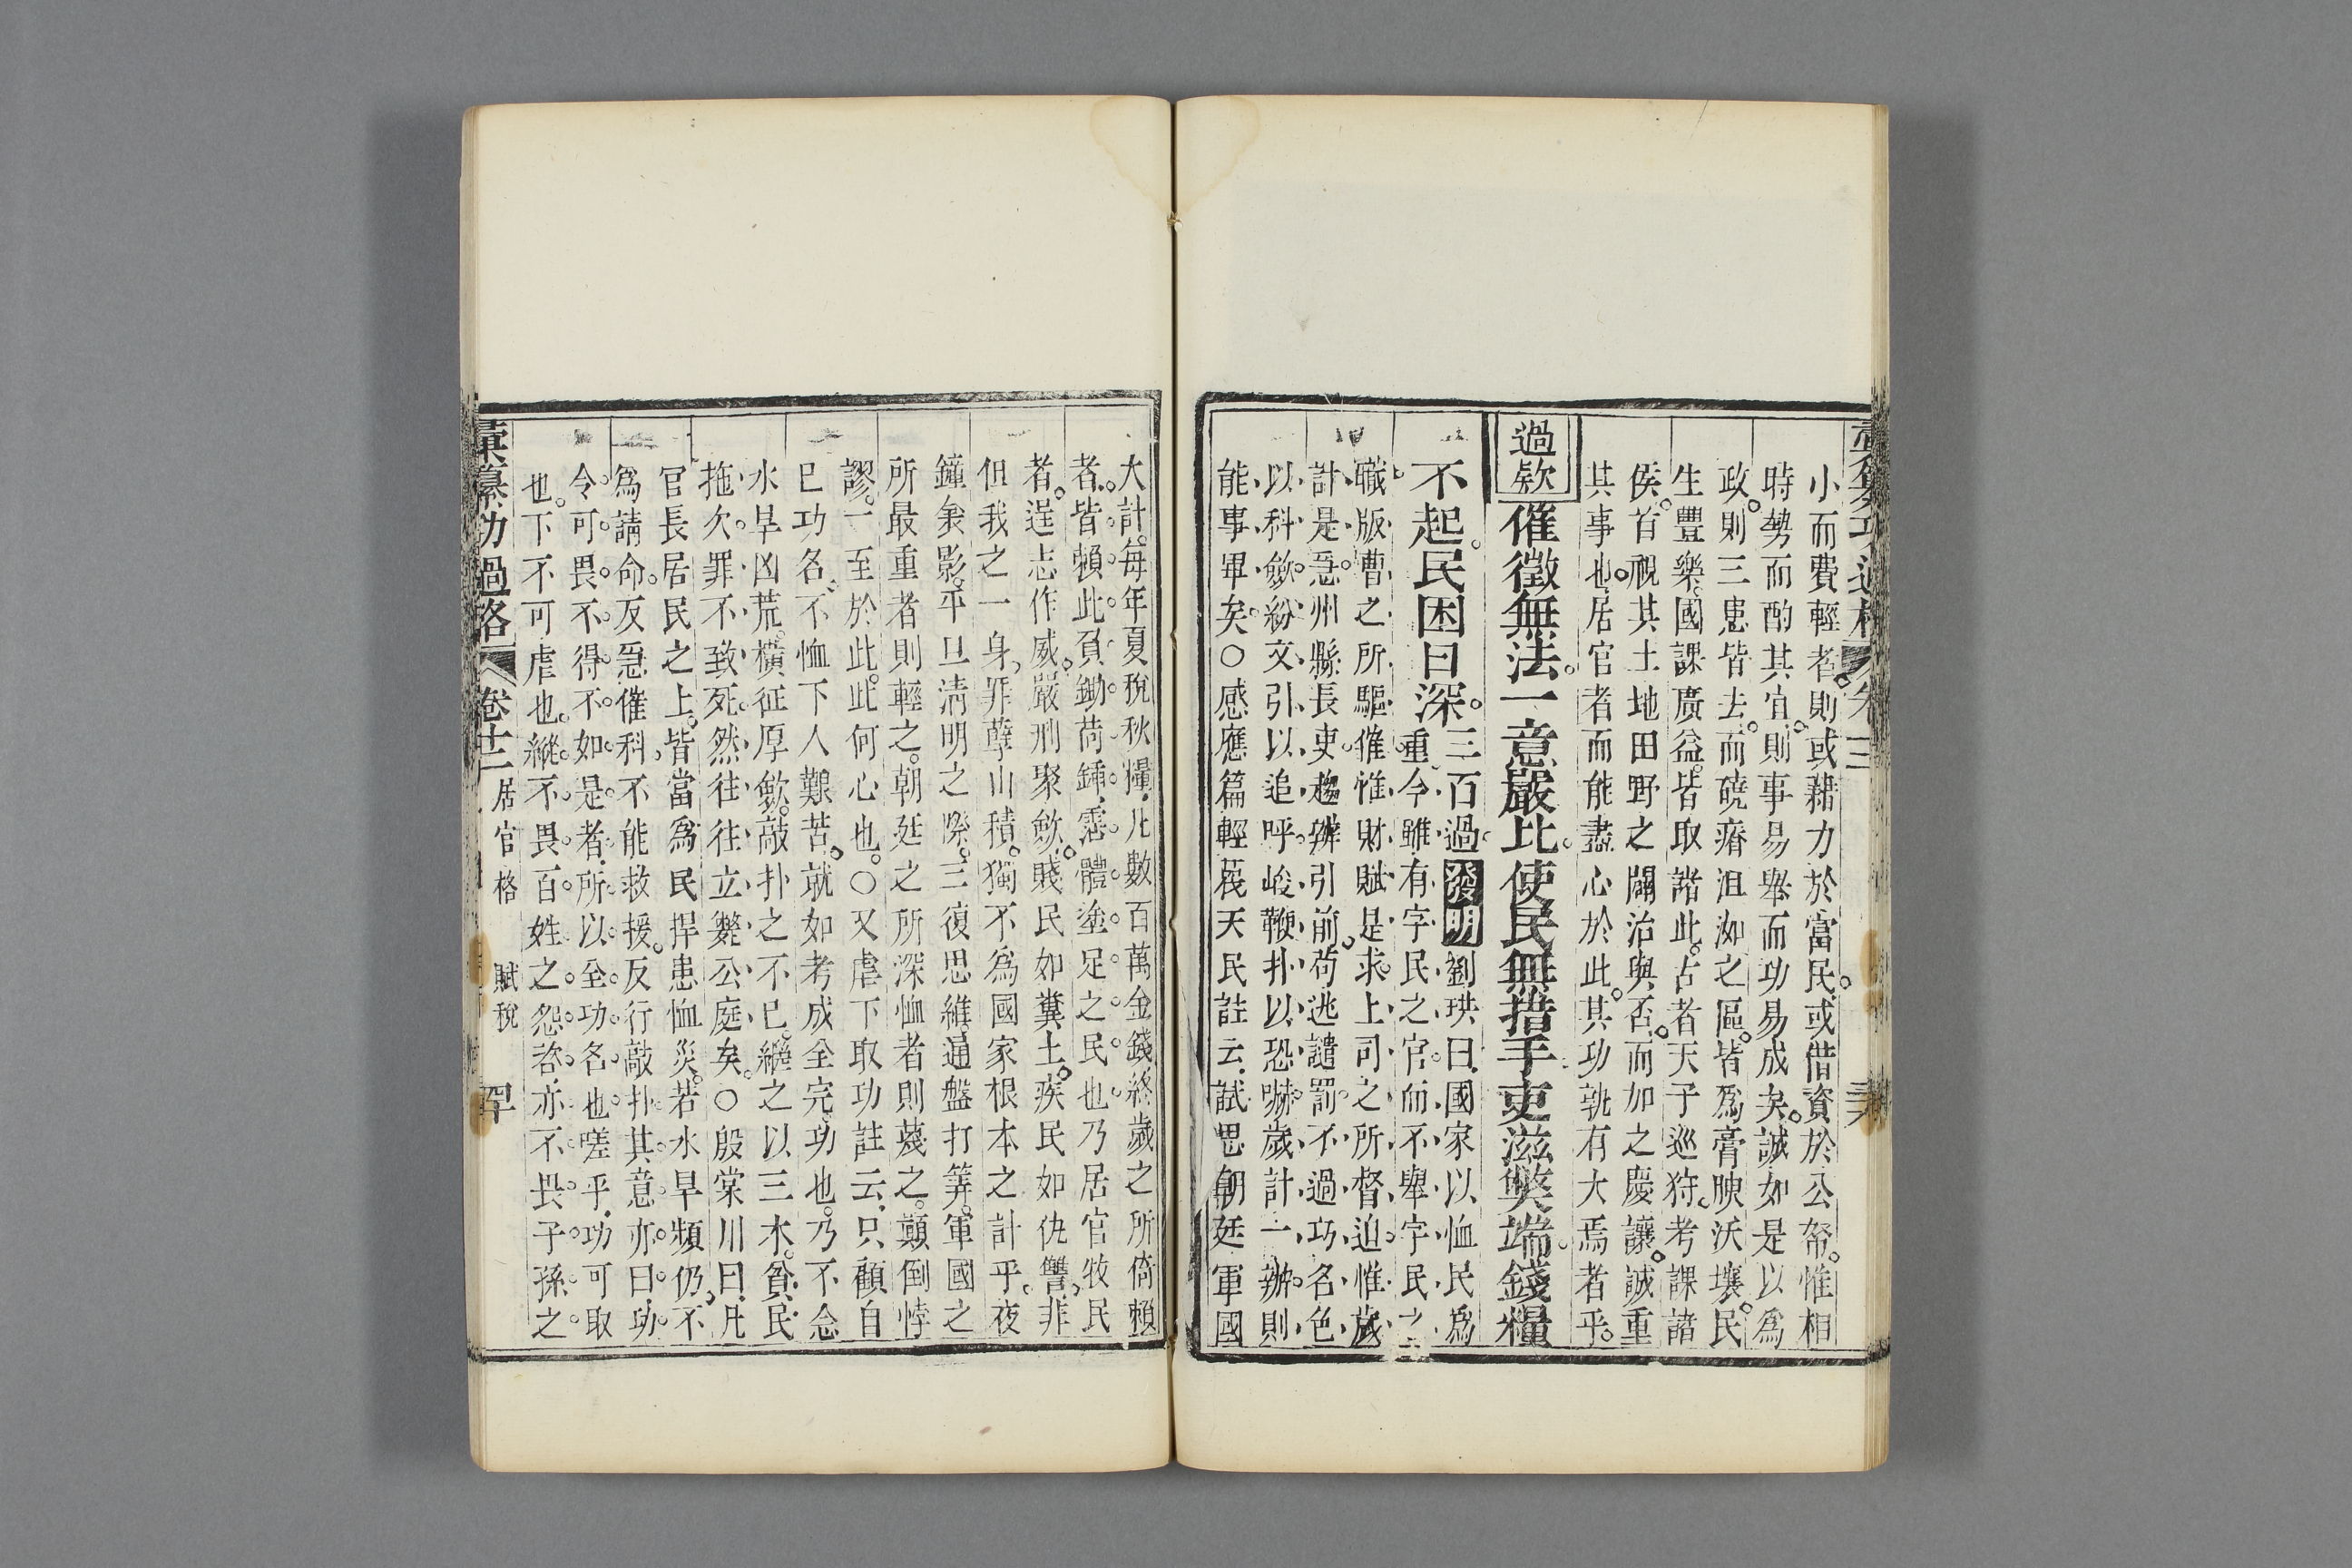 小而費輕者則或藉力於富民或借資於公帑惟相
時勢而酌其宜則事易舉而功易成矣誠如是以爲
政則三患皆去而磽瘠沮洳之區皆爲膏腴沃壤民
生豐樂國課廣益皆取諸此古者天子巡狩考課諸
侯首視其土地田野之闢治與否而加之慶讓誠重
其事也居官者而能盡心於此其功孰有大焉者乎
過欵 催徵無法。一意嚴比。使民無措手吏滋獘端。錢糧
不起。民困日深。三百過 發明 劉珙曰國家以恤民爲
重今雖有字民之官而不舉字民之
職版曹之所驅催惟財賦是求上司之所督迫惟歲
計是急州縣長吏趨辦引前苟逃譴罰不過巧名色
以科歛紛文引以追呼峻鞭扑以恐嚇歲計一辦則
能事畢矣○感應篇輕蔑天民註云試思朝廷軍國
大計每年夏稅秋糧凡數百萬金錢終歲之所倚賴
者皆賴此負鋤荷鍤霑體塗足之民也乃居官牧民
者逞志作威嚴刑聚歛賤民如糞土疾民如仇讐非
但我之一身罪孽山積獨不爲國家根本之計乎夜
鐘衾影平旦清明之際三復思維通盤打筭軍國之
所最重者則輕之朝廷之所深恤者則蔑之顛倒悖
謬一至於此此何心也○又虐下取功註云只顧自
己功名不恤下人艱苦就如考成全完功也乃不念
水旱凶荒橫征厚歛敲扑之不已繼之以三木貧民
拖欠罪不致死然往往立斃公庭矣○殷棠川曰凡
官長居民之上皆當爲民捍患恤災若水旱頻仍不
爲請命反急催科不能救援反行敲扑其意亦曰功
令可畏不得不如是者所以全功名也嗟乎功可取
也下不可虐也縱不畏百姓之怨咨亦不畏子孫之
彙纂功過格 卷十二 居官格 賦稅